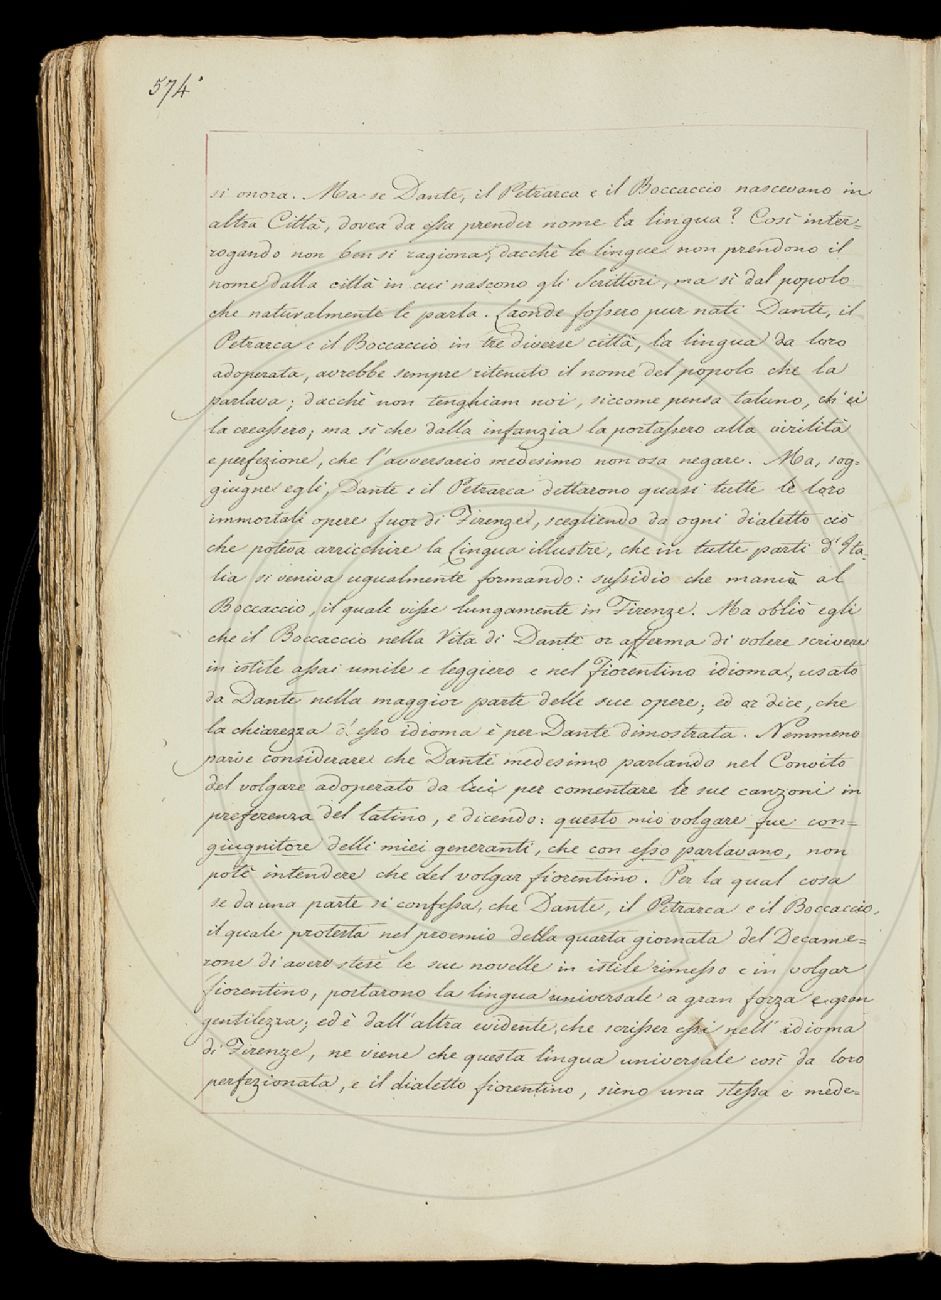 574.
si onora. Ma se Dante, il Petrarca e il Boccaccio nascevano in
altra Città, dovea da essa prender nome la lingua? Così inter=
rogando non ben si ragiona; dacchè le lingue non prendono il
nome dalla città in cui nascono gli Scrittori, ma sì dal popolo
che naturalmente le parla. Laonde fossero pur nati Dante, il
Petrarca e il Boccaccio in tre diverse città, la lingua da loro
adoperata, avrebbe sempre ritenuto il nome del popolo che la
parlava; dacchè non tenghiam noi, siccome pensa taluno, ch'ei
la creassero; ma sì che dalla infanzia la portassero alla virilità
e perfezione, che l'avversario medesimo non osa negare. Ma, sog=
giugne egli, Dante e il Petrarca dettarono quasi tutte le loro
immortali opere fuor di Firenze, scegliendo da ogni dialetto ciò
che poteva arricchire la Lingua illustre, che in tutte parti d'Ita=
lia si veniva ugualmente formando: sussidio che mancò al
Boccaccio, il quale visse lungamente in Firenze. Ma obliò egli
che il Boccaccio nella Vita di Dante or afferma di volere scrivere
in istile assai umile e leggiero e nel Fiorentino idioma, usato
da Dante nella maggior parte delle sue opere; ed or dice, che
la chiarezza d'esso idioma è per Dante dimostrata. Nemmeno
parve considerare che Dante medesimo parlando nel Convito
del volgare adoperato da lui per comentare le sue canzoni in
preferenza del latino, e dicendo: questo mio volgare fue con=
giugnitore delli miei generanti, che con esso parlavano, non
potè intendere che del volgar fiorentino. Per la qual cosa
se da una parte si confessa, che Dante, il Petrarca e il Boccaccio,
il quale protesta nel proemio della quarta giornata del Decame=
rone di avere stese le sue novelle in istile rimesso e in volgar
fiorentino, portarono la lingua universale a gran forza e gran
gentilezza; ed è dall'altra evidente, che scrisser essi nell'idioma
di Firenze, ne viene che questa lingua universale così da loro
perfezionata, e il dialetto fiorentino, sieno una stessa e mede=